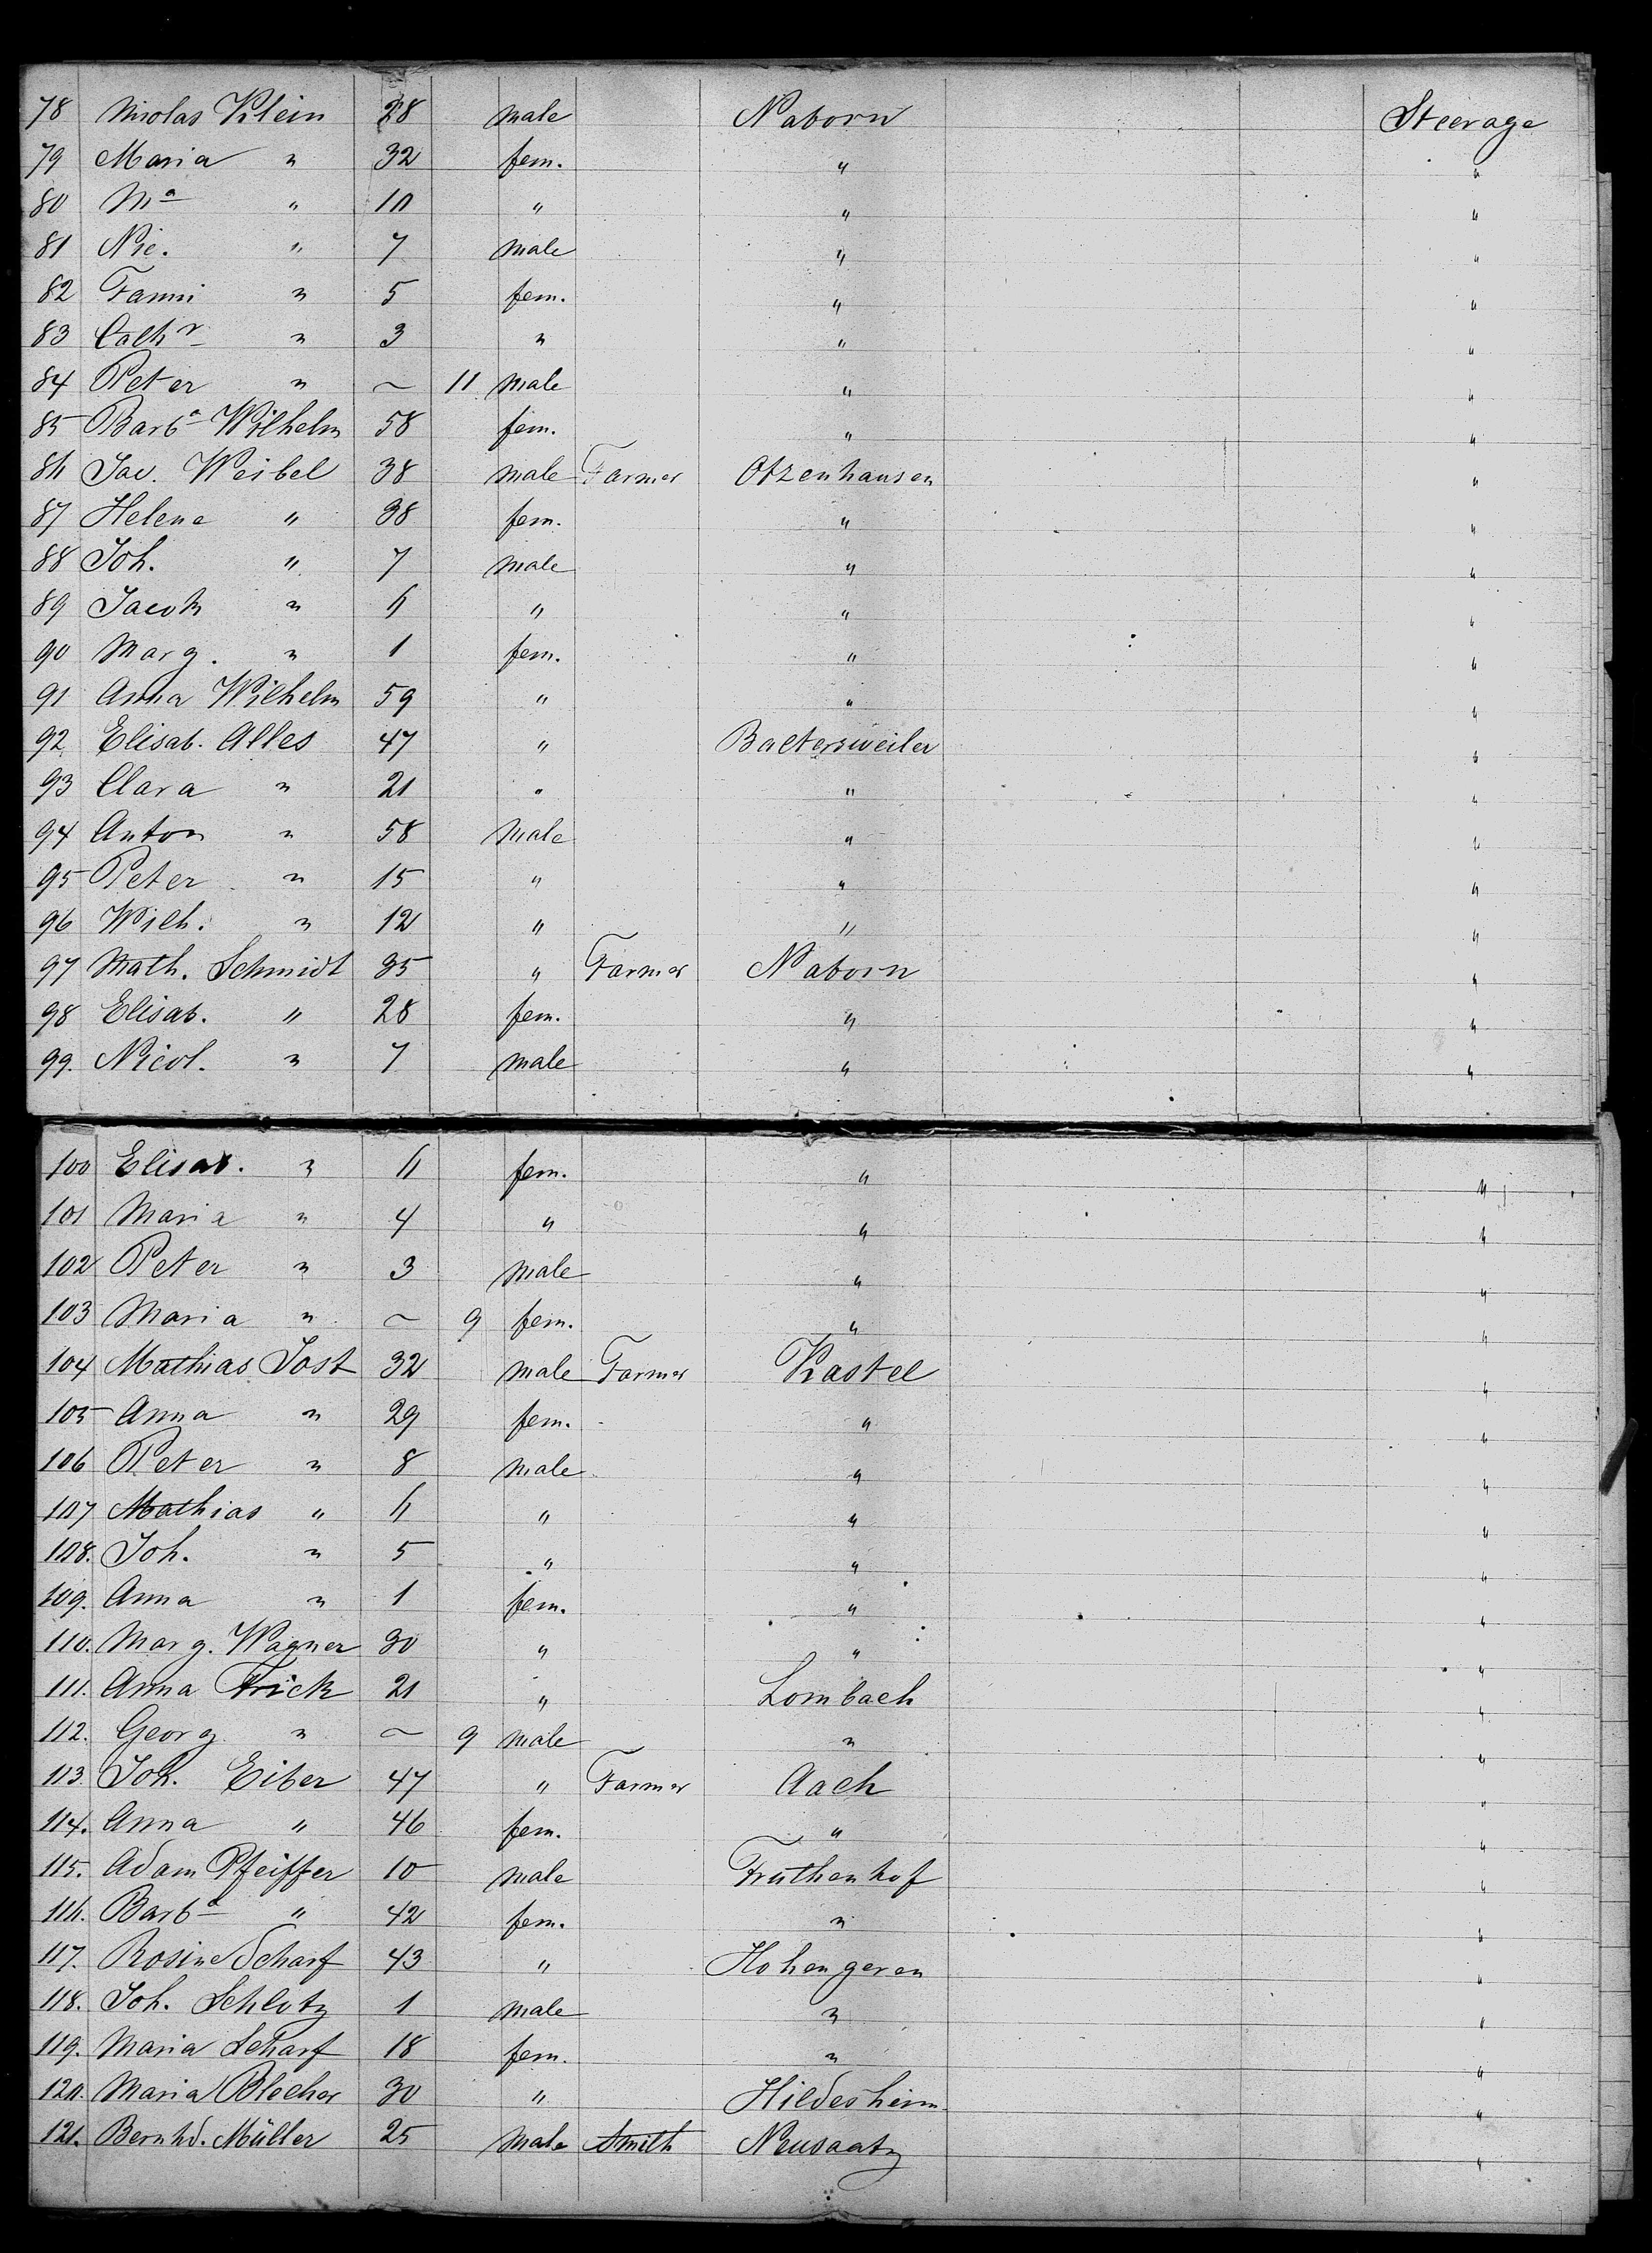 78 Nicolas Klein 28 male Naborn Steerage
79 Maria " 32 fem. " "
80 Ma " 10 " " "
81 Nic. " 7 male " "
82 Fanni " 5 fem. " "
83 Cathr " 3 " " "
84 Peter " ~ 11 male " "
85 Barba Wilhelm 58 fem. " "
86 Jac. Weibel 38 male Farmer Otzenhausen "
87 Helene " 38 fem. " "
88 Joh. " 7 male " "
89 Jacob " 6 " " "
90 Marg. " 1 fem. " "
91 Anna Wilhelm 59 " " "
92 Elisab. Alles 47 " Baltersweiler "
93 Clara " 21 " " "
94 Anton " 58 male " "
95 Peter " 15 " " "
96 Wilh. " 12 " " "
97 Math. Schmidt 35 " Farmer Naborn "
98 Elisab. " 28 fem. " "
99. Nicol. " 7 male " "
100 Elisab. " 6 fem. " "
101 Maria " 4 " " "
102 Peter " 3 male " "
103 Maria " ~ 9 fem. " "
104 Mathias Jost 32 male Farmer Kastel "
105 Anna " 29 fem. " "
106 Peter " 8 male " "
107 Mathias " 6 " " "
108. Joh. " 5 " " "
109. Anna " 1 fem. " "
110. Marg. Wagner 30 " " "
111. Anna Frick 21 " Lombach "
112. Georg " ~ 9 male " "
113. Joh. Eiber 47 " Farmer Aach "
114. Anna " 46 fem. " "
115. Adam Pfeiffer 10 male Fruthenhof "
116. Barba " 42 fem. " "
117. Rosine Scharf 43 " Hohengeren "
118. Joh. Schlotz 1 male " "
119. Maria Scharf 18 fem. " "
120. Maria Blocher 30 " Hildesheim "
121. Bernhd. Müller 25 male Smith Neusaatz "